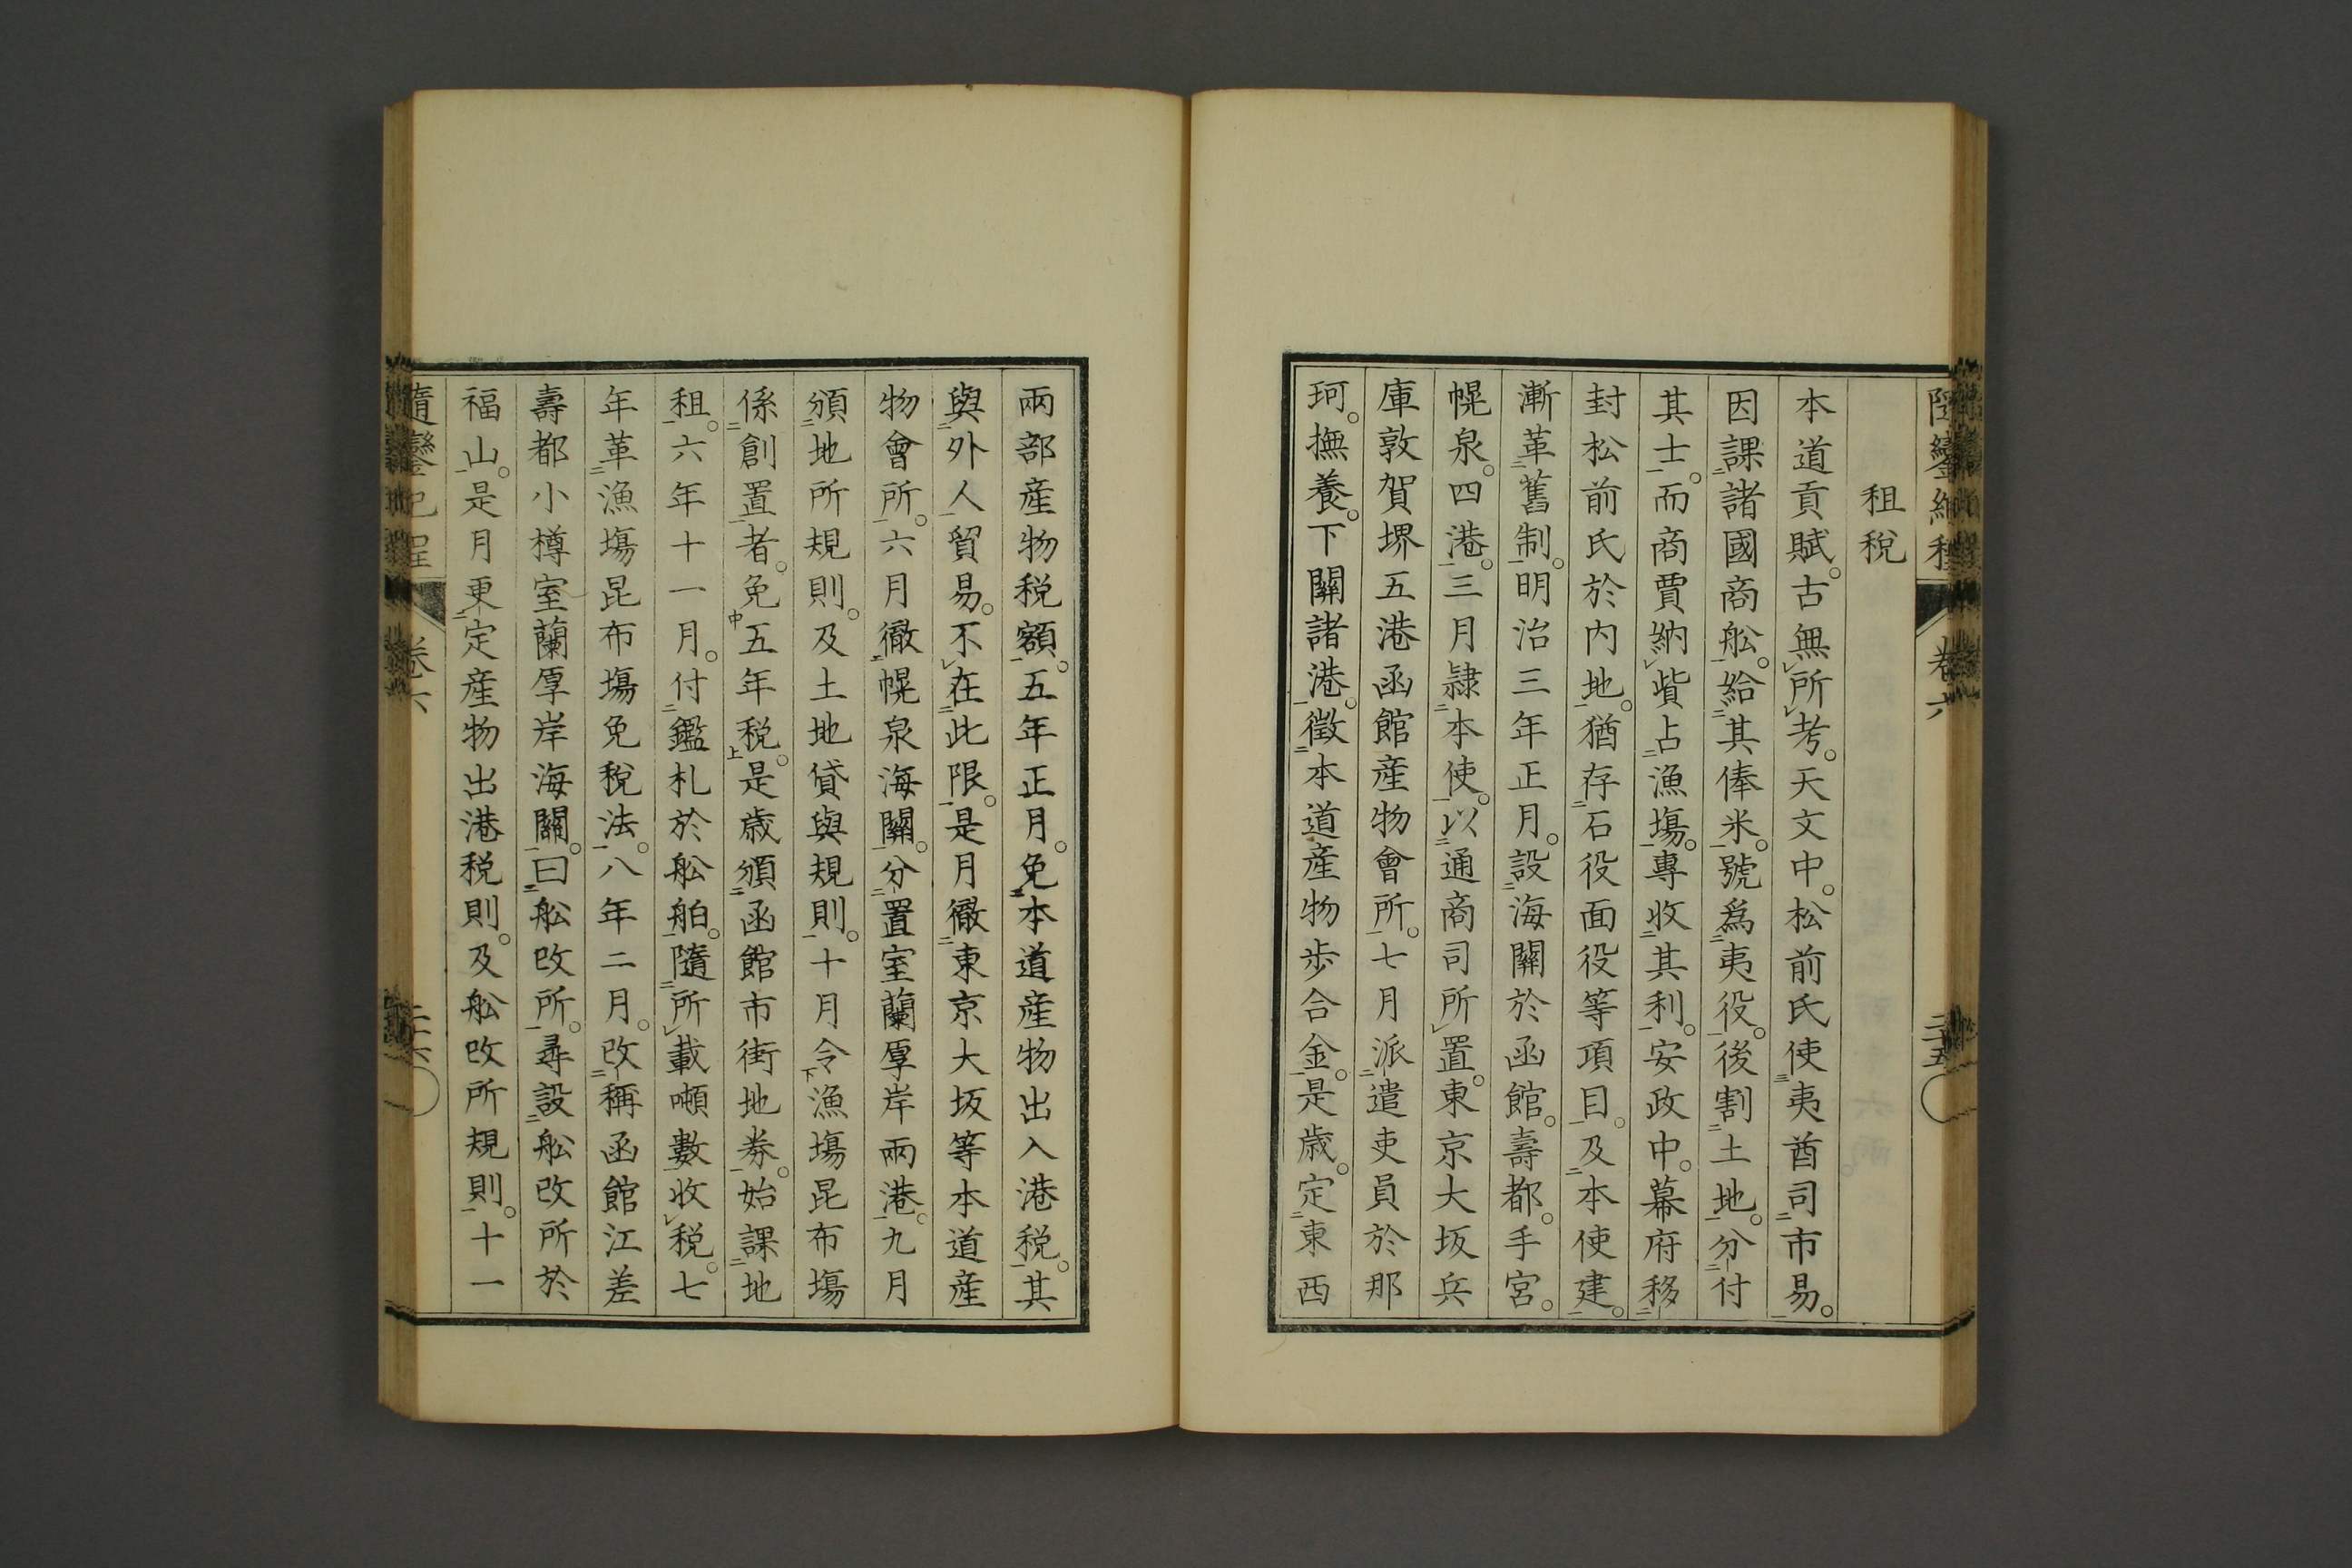 租稅
本道貢賦。古無所考。天文中。松前氏使夷酋司市易。
因課諸國商舩。給其俸米。號爲夷役。後割土地。分付
其士。而商賈納貲占漁塲。專收其利。安政中。幕府移
封松前氏於内地。猶存石役面役等項目。及本使建。
漸革舊制。明治三年正月。設海關於函館。壽都。手宮。
幌泉。四港。三月隷本使。以通商司所置。東京大坂兵
庫敦賀堺五港函館産物會所。七月派遣吏員於那
珂。撫養。下關諸港。徵本道産物歩合金。是歳。定東西
兩部産物税額。五年正月。免本道産物出入港税。其
與外人貿易。不在此限。是月徹東京大坂等本道産
物會所。六月徹幌泉海關。分置室蘭厚岸兩港。九月
頒地所規則。及土地貸與規則。十月令漁塲昆布塲
係創置者。免五年税。是歳頒函館市街地劵。始課地
租。六年十一月。付鑑札於舩舶。隨所載噸數收税。七
年革漁塲昆布塲免税法。八年二月。改稱函館江差
壽都小樽室蘭厚岸海關。曰舩改所。尋設舩改所於
福山。是月更定産物出港税則。及舩改所規則。十一
隨鑾紀程
卷六
二十六